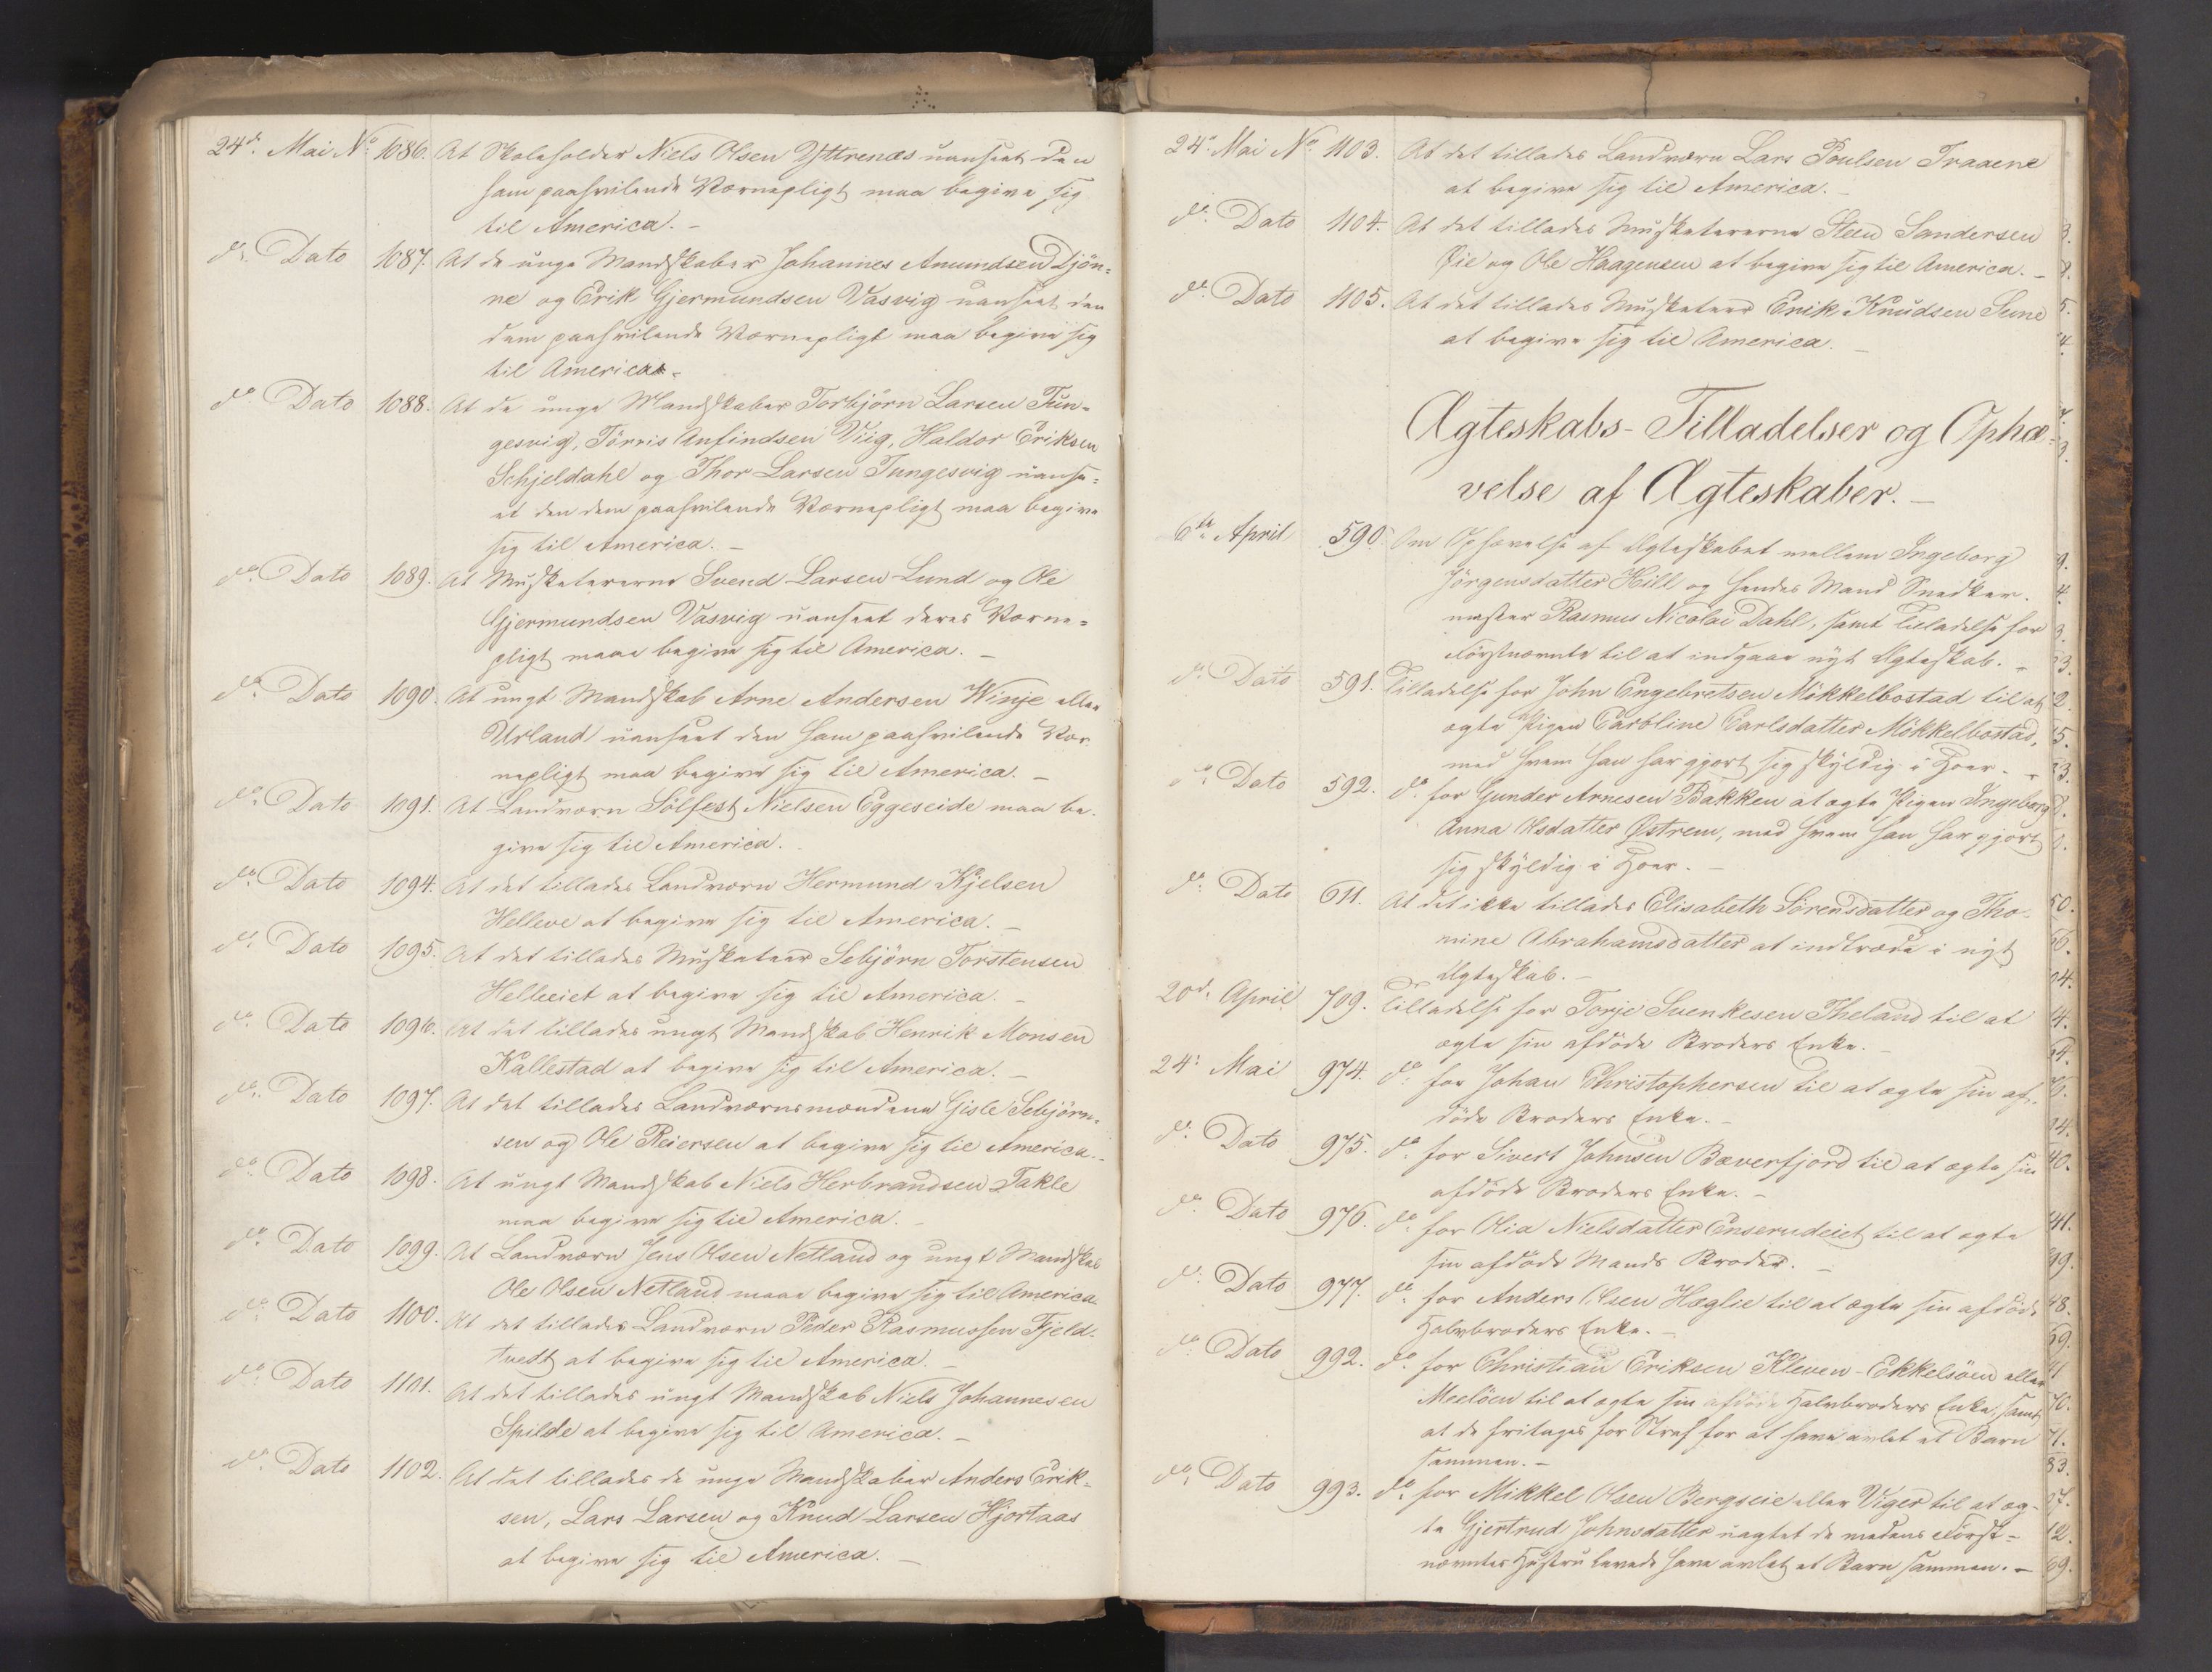 24de Mai No 1086. At Skoleholder Niels Olsen Yttrenæs uanseet den
ham paahvilende Værnepligt maa begive sig
til America. –
do Dato 1087. At de unge Mandskaber Johannes Amundsen Djön=
ne og Erik Gjermundsen Vasvig uanseet den
dem paahvilende Værnepligt maa begive sig
til America.
do Dato 1088. At de unge Mandskaber Torbjörn Larsen Tun=
gesvig, Törris Anfindsen Viig, Haldor Eriksen
Schjeldahl og Thor Larsen Tungesvig uanse=
et den dem paahvilende Værnepligt maa begive
sig til America. –
do Dato 1089. At Musketererne Svend Larsen Lund og Ole
Gjermundsen Vasvig uanseet deres Værne=
pligt maae begive sig til America. –
do Dato 1090. At ungt Mandskab Arne Andersen Winje eller
Urland uanseet den ham paahvilende Vær
nepligt maa begive sig til America. –
do Dato 1091. At Landværn Sölfest Nielsen Eggeseide maa be=
give sig til America.
do Dato 1094. At det tillades Landværn Hermund Kjelsen
Helleve at begive sig til America. –
do Dato 1095. At det tillades Musketeer Sebjörn Torstensen
Helleeiet at begive sig til America. –
do Dato 1096. At det tillades ungt Mandskab Henrik Monsen
Kallestad at begive sig til America. –
do Dato 1097. At det tillades Landværnsmændene Gisle Sebjörn=
sen og Ole Reiersen at begive sig til America. –
do Dato 1098. At ungt Mandskab Niels Herbrandsen Takle
maa begive sig til America. –
do Dato 1099. At Landværn Jens Olsen Netland og ungt Mandskab
Ole Olsen Netland maae begive sig til America
do Dato 1100. At det tillades Landværn Peder Rasmussen Fjeld=
tvedt at begive sig til America. –
do Dato 1101. At det tillades ungt Mandskab Niels Johannesen
Spilde at begive sig til America. –
do Dato 1102. At det tillades de unge Mandskaber Anders Erik=
sen, Lars Larsen og Knud Larsen Hjortaas
at begive sig til America. –
24de Mai No 1103. At det tillades Landværn Lars Poulsen Traaene
at begive sig til America. –
do Dato 1104. At det tillades Musketererne Steen Sandersen
Øie og Ole Haagensen at begive sig til America. –
do Dato 1105. At det tillades Musketeer Erik Knudsen Sune
at begive sig til America. –
Ægteskabs-Tilladelser og Ophæ=
velse af Ægteskaber. –
6te April 590. Om Ophævelse af Ægteskabet mellem Ingeborg
Jörgensdatter Hill og hendes Mand Snedker=
mester Rasmus Nicolai Dahl, samt Tilladelse for
Förstnævnte til at indgaae nyt Ægteskab. –
do Dato 591. Tilladelse for John Engebretsen Mökkelbostad til at
ægte Pigen Caroline Carlsdatter Mökkelbostad,
med hvem han har gjort sig skyldig i Hoer. –
do Dato 592. do for Gunder Arnesen Bakken at ægte Pigen Ingeborg
Anna Olsdatter Østrem, med hvem han har gjort
sig skyldig i Hoer. –
do Dato 611. At det ikke tillades Elisabeth Sörensdatter og Tho=
mine Abrahamsdatter at indtræde i nyt
Ægteskab. –
20de April 709. Tilladelse for Torje Svenkesen Theland til at
ægte sin afdöde Broders Enke. –
24de Mai 974. do for Johan Christophersen til at ægte sin af=
döde Broders Enke. –
do Dato 975. do for Sivert Johnsen Bæverfjord til at ægte sin
afdöde Broders Enke. –
do Dato 976. do for Olia Nielsdatter Enserudeiet til at ægte
sin afdöde Mands Broder. –
do Dato 977. do for Anders Olsen Hæglie til at ægte sin afdöde
Halvbroders Enke. –
do Dato 992. do for Christian Eriksen Kleven-Ekkelsöen eller
Meelöen til at ægte sin afdöde Halvbroders Enke, samt
at de fritages for Straf for at have avlet et Barn
sammen. –
do Dato 993. do for Mikkel Olsen Bergseie eller Viger til at æg=
te Gjertrud Johnsdatter uagtet de medens Först=
nævntes Hustru levede have avlet et Barn sammen. –